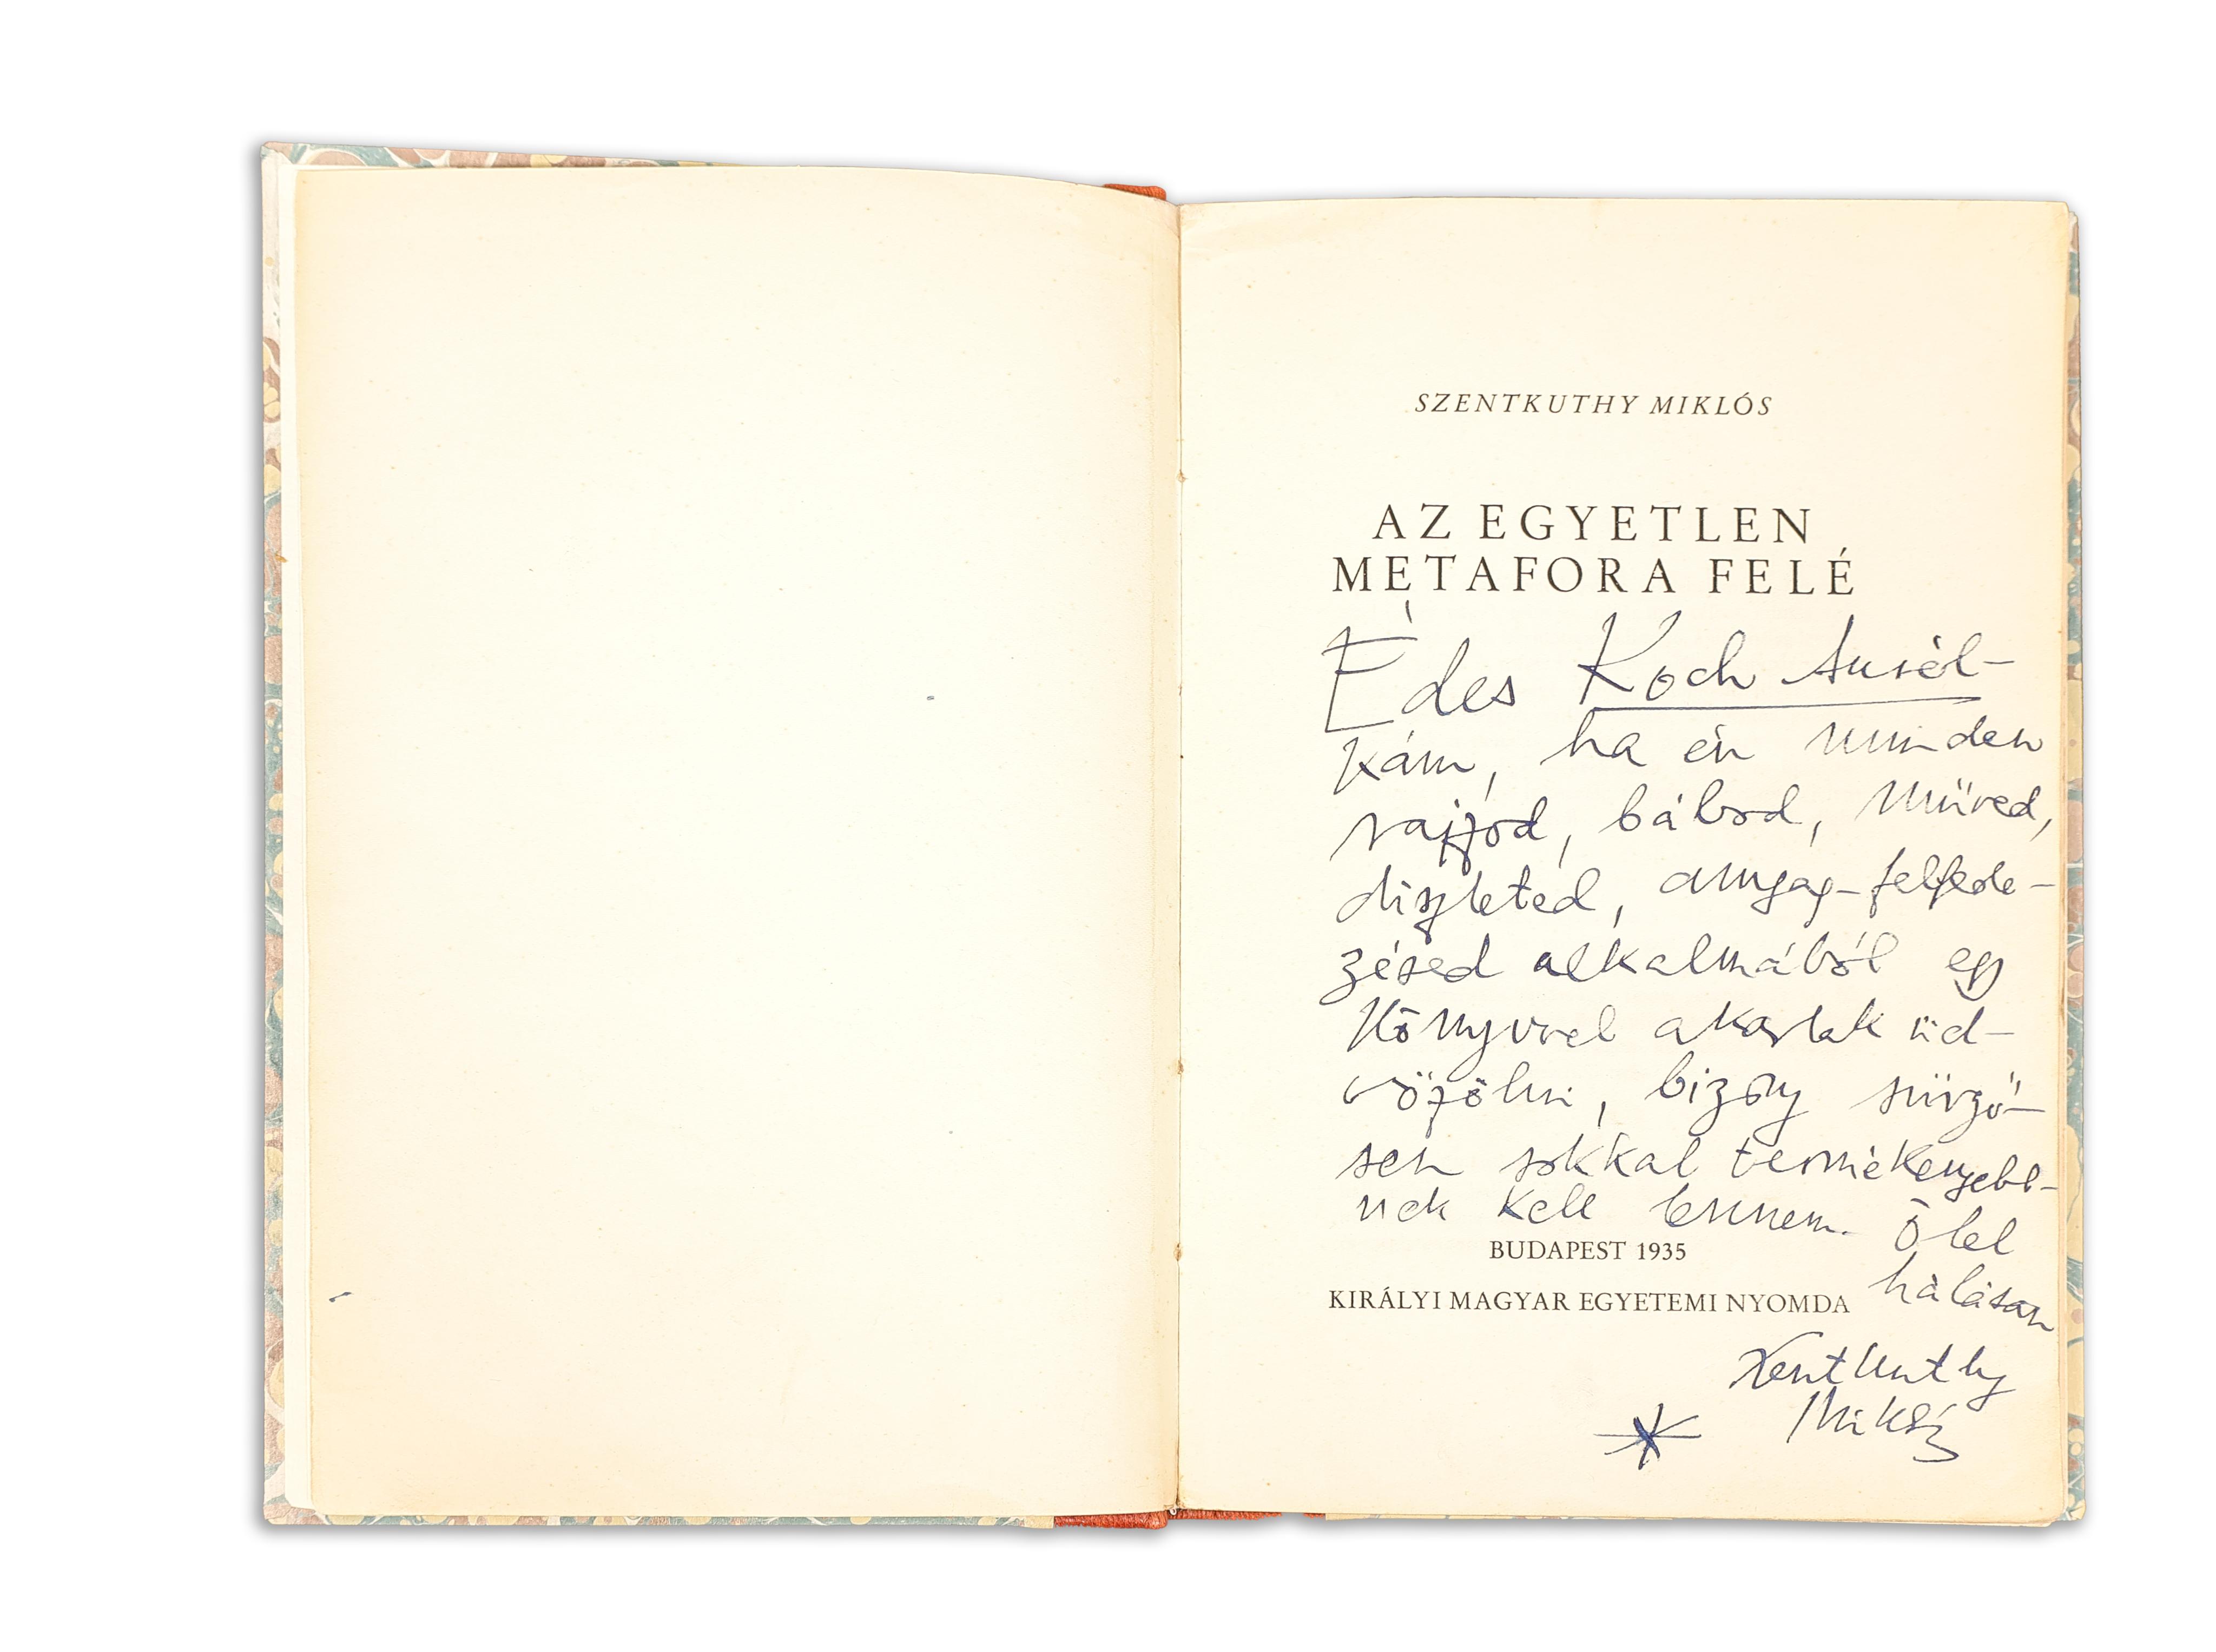 SZENTKUTHY MIKLÓS
AZ EGYETLEN
METAFORA FELÉ
Édes Koch Aurél-
kám, ha én minden
rajzod, bábod, műved,
díszleted, anyag-felfede-
zésed alkalmából egy
könyvvel akarlak üd-
vözölni, bizony sürgő-
sen sokkal termékenyebb-
nek kell lennem. Ölel
BUDAPEST 1935
hálásan
KIRÁLYI MAGYAR EGYETEMI NYOMDA
Szentkuthy
Miklós